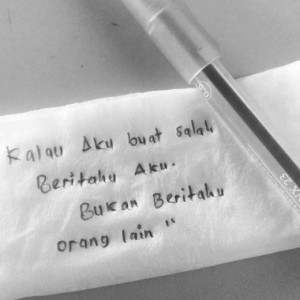 Kalau Aku buat salah
Beritahu Aku.
Bukan Beritahu
orang lain "